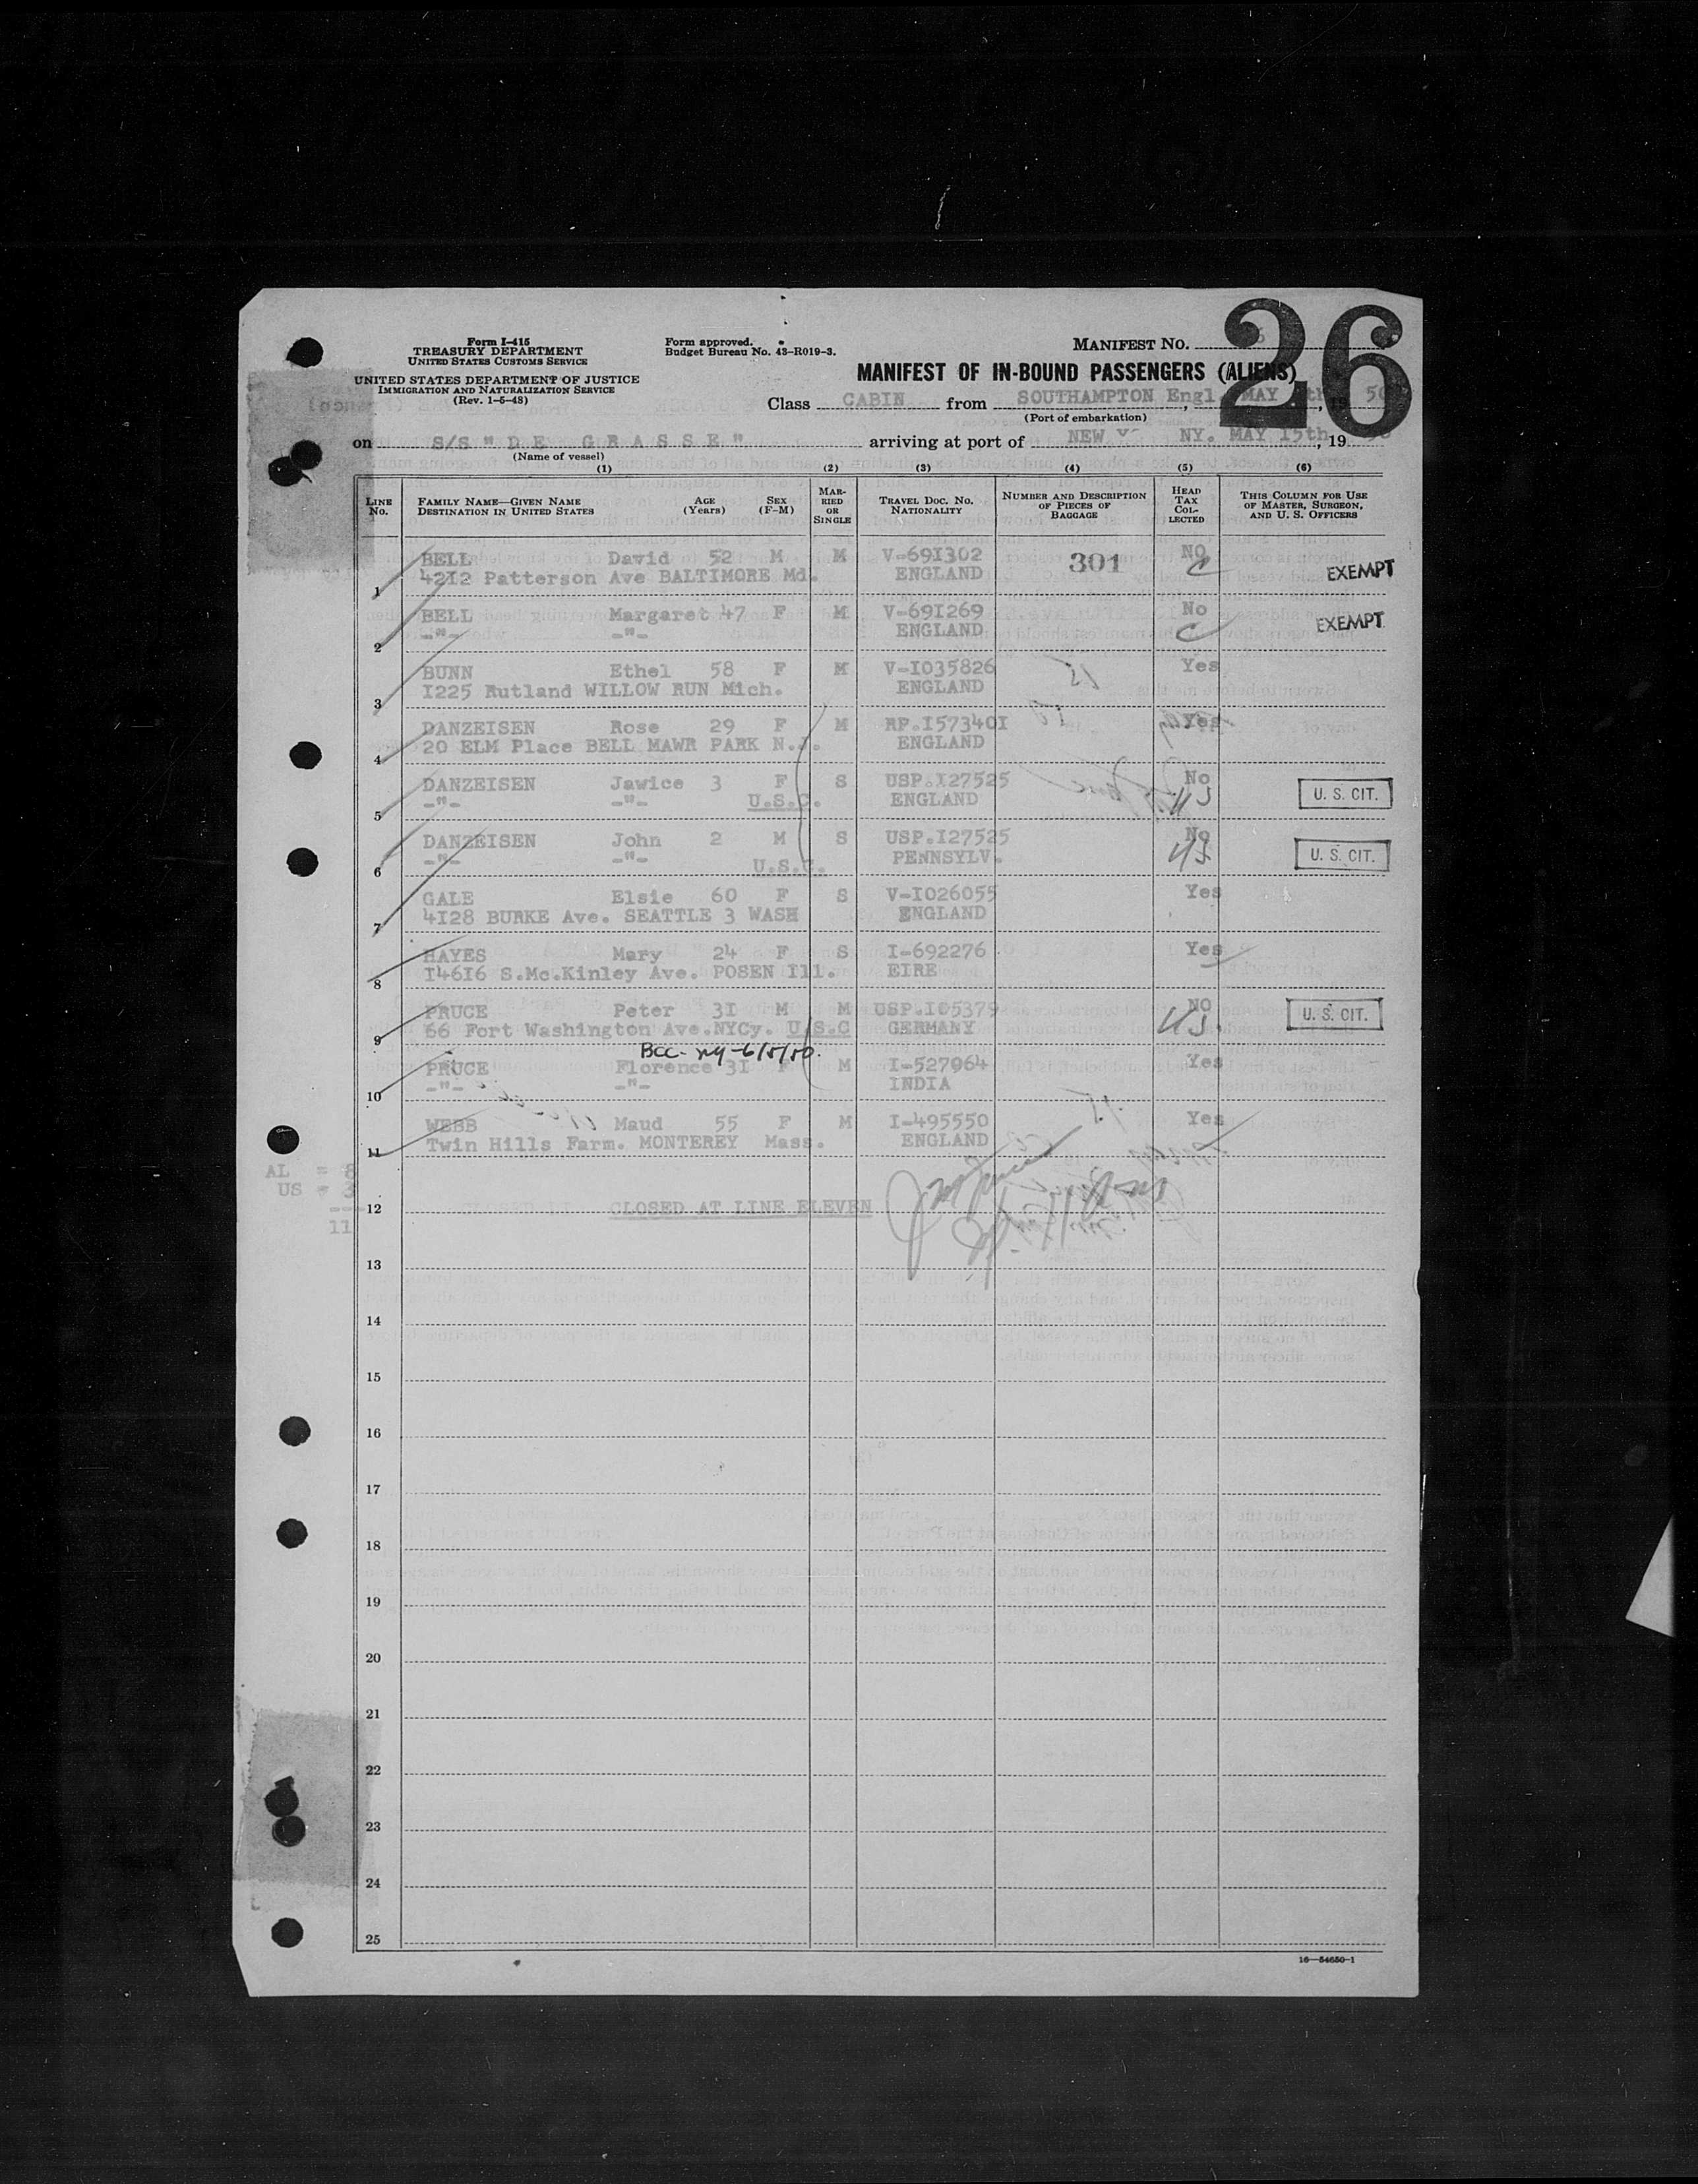 26
Form I-415
TREASURY DEPARTMENT
UNITED STATES CUSTOMS SERVICE
UNITED STATES DEPARTMENT OF JUSTICE
IMMIGRATION AND NATURALIZATION SERVICE
(Rev. 1-5-48)
Form approved.
Budget Bureau No. 43-R019-3.
MANIFEST NO.
MANIFEST OF IN-BOUND PASSENGERS (ALIENS)
Class CABIN from SOUTHAMPTON Engl , MAY th , 19 50
(Port of embarkation)
on S/S "DE GRASSE" arriving at port of NEW NY. MAY 15th , 19 50
(Name of vessel)
(1) (2) (3) (4) (5) (6)
LINE NO. FAMILY NAME—GIVEN NAME DESTINATION IN UNITED STATES AGE (Years) SEX (F-M) MARRIED OR SINGLE TRAVEL DOC. NO. NATIONALITY NUMBER AND DESCRIPTION OF PIECES OF BAGGAGE HEAD TAX COLLECTED THIS COLUMN FOR USE OF MASTER, SURGEON, AND U. S. OFFICERS
BELL David 52 M M V-691302 301 NO EXEMPT
1 4212 Patterson Ave BALTIMORE Md. ENGLAND C
BELL Margaret 47 F M V-691269 No EXEMPT
2 -"- -"- ENGLAND C
BUNN Ethel 58 F M V-I035826 Yes
3 I225 Rutland WILLOW RUN Mich. ENGLAND
DANZEISEN Rose 29 F M RP.I57340I Yes
4 20 ELM Place BELL MAWR PARK N.J. ENGLAND
DANZEISEN Jawice 3 F S USP.I27525 No U. S. CIT.
5 -"- -"- U.S.C. ENGLAND US
DANZEISEN John 2 M S USP.I27525 No U. S. CIT.
6 -"- -"- U.S.C. PENNSYLV. US
GALE Elsie 60 F S V-I026055 Yes
7 4I28 BURKE Ave. SEATTLE 3 WASH ENGLAND
HAYES Mary 24 F S I-692276 Yes
8 I46I6 S.Mc.Kinley Ave. POSEN Ill. EIRE
PRUCE Peter 3I M M USP.I05379 NO U. S. CIT.
9 66 Fort Washington Ave.NYCy. U.S.C GERMANY US.
BCC- NY-6/5/50.
PRUCE Florence 3I F M I-527964 Yes
10 -"- -"- INDIA
WEBB Maud 55 F M I-495550 Yes
11 Twin Hills Farm. MONTEREY Mass. ENGLAND
AL = 8
US = 3
---
11
12 CLOSED AT LINE ELEVEN
13
14
15
16
17
18
19
20
21
22
23
24
25
16—54650-1